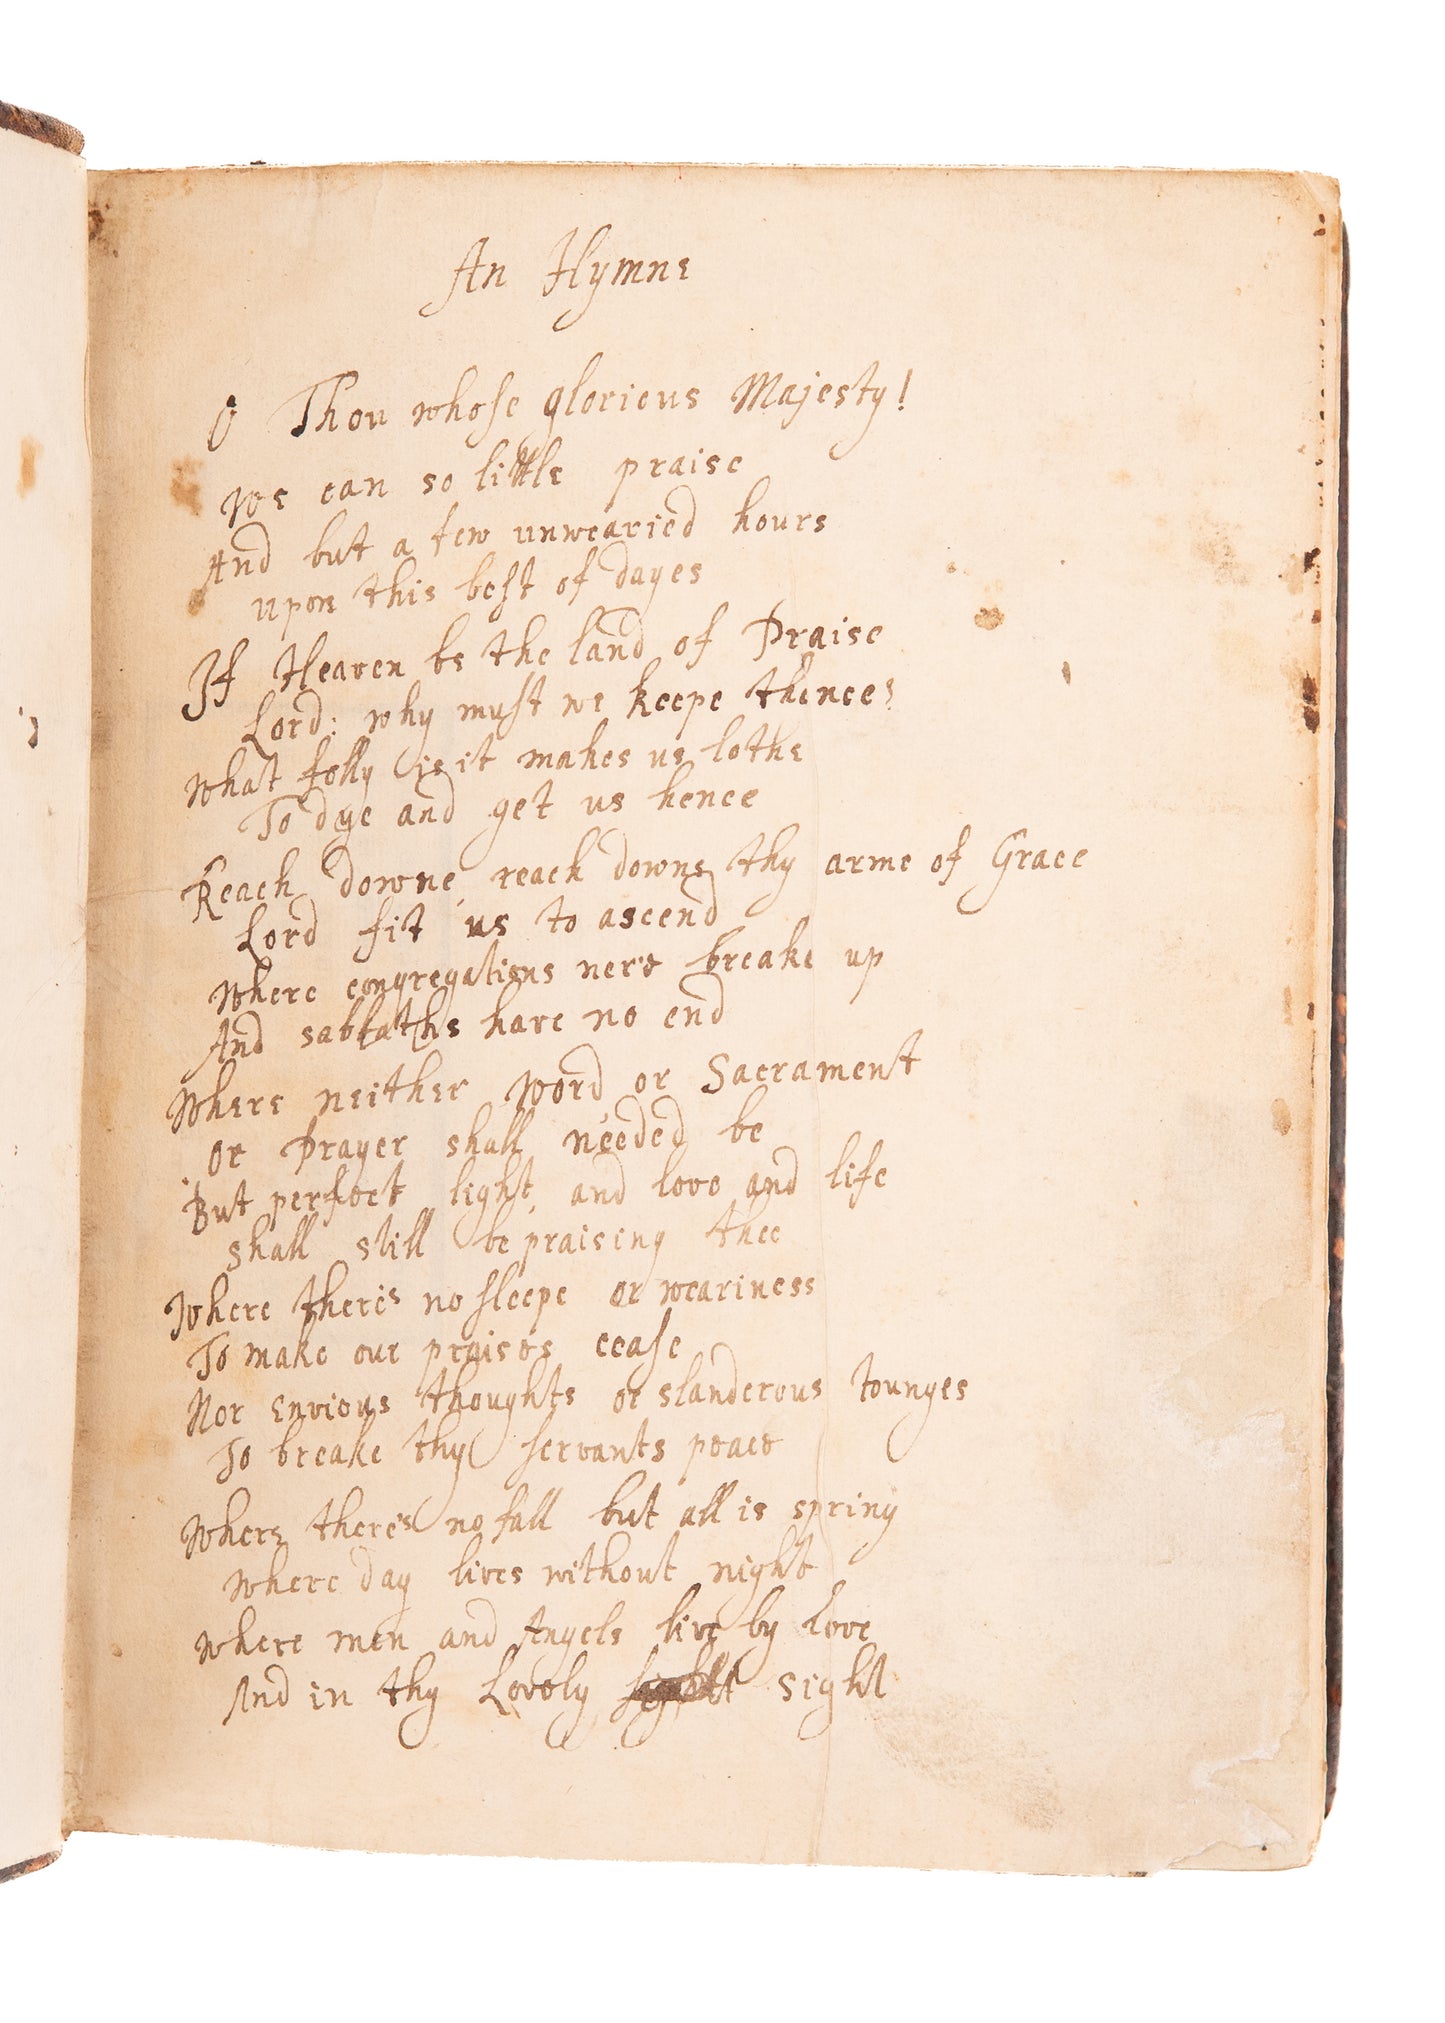 An Hymne
O Thou whose glorious Majesty!
We can so little praise
And but a few unwearied hours
upon this best of dayes
If Heaven be the land of Praise
Lord: why must we keepe thence?
What folly is it makes us lothe
To dye and get us hence
Reach downe, reach downe thy arme of Grace
Lord fit us to ascend
Where congregations ne're breake up
And sabbaths have no end
Where neither Word or Sacrament
or Prayer shall needed be
But perfect light, and love and life
shall still be praising thee
Where there's no sleepe or weariness
To make our praises cease
Nor Envious thoughts or slanderous tounges
To breake thy servants peace
Where there's no fall but all is spring
Where day lives without night
Where men and Angels live by Love
And in thy Lovely sight